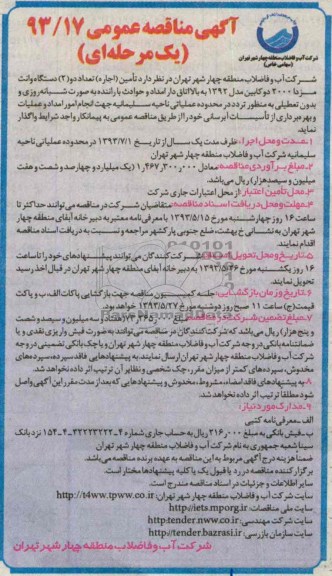 شرکت آب و فاضلاب منطقه چهار شهر تهران
(سهامی خاص)
آگهی مناقصه عمومی ۹۳/۱۷
(یک مرحله‌ای)
شرکت آب و فاضلاب منطقه چهار شهر تهران در نظر دارد تأمین (اجاره) تعداد دو (۲) دستگاه وانت
مزدا ۲۰۰۰ دو کابین مدل ۱۳۹۲ به بالا اتاق دار امداد و حوادث با راننده به صورت شبانه‌روزی و
بدون تعطیلی به منظور تردد در محدوده عملیاتی ناحیه سلیمانیه جهت انجام امور امداد و عملیات
و بهره‌برداری از تأسیسات آبرسانی خود را از طریق مناقصه عمومی به پیمانکار واجد شرایط واگذار
نماید.
۱ـ مدت و محل اجرا: ظرف مدت یک سال از تاریخ ۱۳۹۳/۷/۱ در محدوده عملیاتی ناحیه
سلیمانیه شرکت آب و فاضلاب منطقه چهار شهر تهران
۲ـ مبلغ برآوردی مناقصه: ۱,۴۶۷,۳۰۰,۰۰۰ (یک میلیارد و چهارصد و شصت و هفت
میلیون و سیصد هزار) ریال می‌باشد.
۳ـ محل تأمین اعتبار: از محل اعتبارات جاری شرکت
۴ـ مهلت و محل دریافت اسناد مناقصه: متقاضیان شرکت در مناقصه می‌توانند حداکثر تا
ساعت ۱۶ روز چهارشنبه مورخ ۱۳۹۳/۵/۱۵ با معرفی‌نامه معتبر به دبیرخانه آبفای منطقه چهار
شهر تهران به نشانی خ بهشت، ضلع جنوبی پارکشهر مراجعه و نسبت به دریافت اسناد مناقصه
اقدام نمایند.
۵ـ تاریخ و محل تحویل اسناد: شرکت‌کنندگان می‌توانند پیشنهادهای خود را تا ساعت
۱۶ روز یکشنبه مورخ ۱۳۹۳/۵/۲۶ به دبیرخانه آبفای منطقه چهار شهر تهران در قبال اخذ رسید
تحویل نمایند.
۶ـ تاریخ و زمان بازگشایی: جلسه کمیسیون مناقصه جهت بازگشایی پاکات الف، ب و پاکت
قیمت (ج) ساعت ۱۱ صبح روز دوشنبه مورخ ۱۳۹۳/۵/۲۷ خواهد بود.
۷ـ مبلغ تضمین شرکت در
و پنج هزار) ریال می‌باشد که شرکت‌کنندگان در مناقصه می‌توانند به صورت فیش واریزی نقدی و یا
ضمانتنامه بانکی در وجه شرکت آب و فاضلاب منطقه چهار شهر تهران و یا چک بانکی تضمینی در وجه
شرکت آب و فاضلاب منطقه چهار شهر تهران ارسال نمایند. به پیشنهادهایی فاقد سپرده، سپرده‌های
مخدوش، سپرده‌های کمتر از میزان مقرر، چک شخصی و نظایر آن ترتیب اثر داده نخواهد شد.
۸ـ به پیشنهادهای فاقد امضاء، مشروط، مخدوش و پیشنهادهایی که بعد از مدت مقرر این آگهی واصل
شود مطلقاً ترتیب اثر داده نخواهد شد.
۹ـ مدارک مورد نیاز:
الف ـ معرفی‌نامه کتبی
ب ـ فیش بانکی به مبلغ ۲۱۶,۰۰۰ ریال به حساب جاری شماره ۴ـ۳۲۲۲۳۲۲۲ـ۴ـ۱۵۴ نزد بانک
سینا شعبه جمهوری به نام شرکت آب و فاضلاب منطقه چهار شهر تهران
ضمناً هزینه درج آگهی مربوط به این مناقصه به عهده برنده مناقصه می‌باشد.
برگزارکننده مناقصه در رد یا قبول یک یا کلیه پیشنهادها مختار است.
سایر اطلاعات و جزئیات در اسناد مناقصه مندرج است.
سایت شرکت آب و فاضلاب منطقه چهار شهر تهران: http://t4ww.tpww.co.ir
سایت ملی مناقصات: http://iets.mporg.ir
سایت شرکت مهندسی: http:tender.nww.co.ir
سایت سازمان بازرسی: http://tender.bazrasi.ir
شرکت آب و فاضلاب منطقه چهار شهر تهران